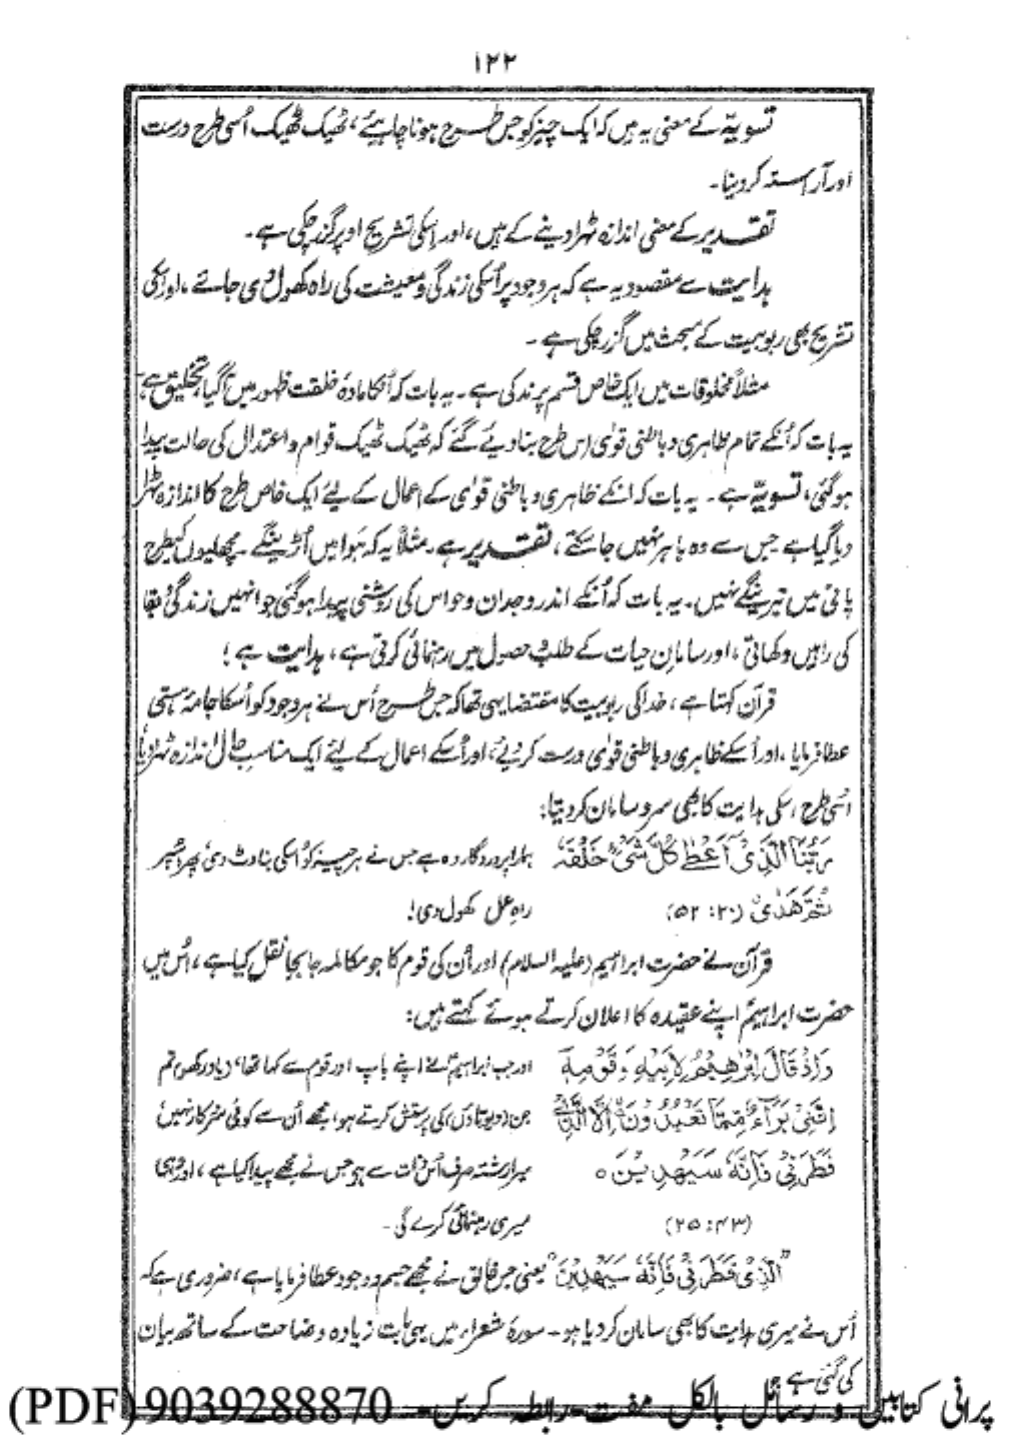 ۱۲۲
تسویہّ کے معنی یہ ہیں کہ ایک چیز کو جس طرح ہونا چاہیئے، ٹھیک ٹھیک اُسی طرح درست
اور آراستہ کر دینا۔
تقدیر کے معنی اندازہ ٹہرا دینے کے ہیں، اور اسکی تشریح اوپر گزر چکی ہے۔
ہدایت سے مقصود یہ ہے کہ ہر وجود پر اُسکی زندگی و معیشت کی راہ کھول دی جائے، اور اسکی
تشریح بھی ربوبیت کے مبحث میں گزر چکی ہے۔
مثلاً مخلوقات میں ایک خاص قسم پرند کی ہے۔ یہ بات کہ اُنکا مادۂ خلقت ظہور میں آگیا، تخلیق ہے،
یہ بات کہ اُنکے تمام ظاہری و باطنی قوٰی اس طرح بنا دیے گئے کہ ٹھیک ٹھیک قوام و اعتدال کی حالت پیدا
ہو گئی، تسویہّ ہے۔ یہ بات کہ انکے ظاہری و باطنی قوٰی کے اعمال کے لیئے ایک خاص طرح کا اندازہ ٹہرا
دیا گیا ہے جس سے وہ باہر نہیں جا سکتے، تقدیر ہے۔ مثلاً یہ کہ ہوا میں اُڑینگے۔ مچھلیوں کیطرح
پانی میں تیرینگے نہیں۔ یہ بات کہ اُنکے اندر وجدان و حواس کی روشنی پیدا ہو گئی جو انہیں زندگی و بقا
کی راہیں دکھاتی، اور سامانِ حیات کے طلب و حصول میں رہنمائی کرتی ہے، ہدایت ہے!
قرآن کہتا ہے، خدا کی ربوبیت کا مقتضا یہی تھا کہ جس طرح اُس نے ہر وجود کو اُسکا جامۂ ہستی
عطا فرمایا، اور اُسکے ظاہری و باطنی قوٰی درست کر دیے، اور اُسکے اعمال کے لیئے ایک مناسب حال اندازہ ٹہرا دیا
اُسی طرح اسکی ہدایت کا بھی سر و سامان کر دیتا:
رَبُّنَا الَّذِیْ اَعْطٰی کُلَّ شَیْءٍ خَلْقَہٗ ہمارا پروردگار وہ ہے جس نے ہر چیز کو اُسکی بناوٹ دی، پھر اُسپر
ثُمَّ ھَدٰی (۲۰: ۵۲) راہِ عمل کھول دی!
قرآن نے حضرت ابراہیم (علیہ السلام) اور اُن کی قوم کا جو مکالمہ جابجا نقل کیا ہے، اُس میں
حضرت ابراہیمؑ اپنے عقیدہ کا اعلان کرتے ہوئے کہتے ہیں:
وَاِذْ قَالَ اِبْرٰھِیْمُ لِاَبِیْہِ وَقَوْمِہٖٓ اور جب ابراہیمؑ نے اپنے باپ اور قوم سے کہا تھا، (یاد رکھو) تم
اِنَّنِیْ بَرَآءٌ مِّمَّا تَعْبُدُوْنَ اِلَّا الَّذِیْ جن (دیوتاؤں) کی پرستش کرتے ہو، مجھے اُن سے کوئی سروکار نہیں
فَطَرَنِیْ فَاِنَّہٗ سَیَھْدِیْنِ ہ میرا رشتہ صرف اُس ذات سے ہے جس نے مجھے پیدا کیا ہے، اور وہی
(۴۳: ۲۵) میری رہنمائی کرے گی۔
"الَّذِیْ فَطَرَنِیْ فَاِنَّہٗ سَیَھْدِیْنِ" یعنی جس خالق نے مجھے جسم و وجود عطا فرمایا ہے، ضروری ہے کہ
اُس نے میری ہدایت کا بھی سامان کر دیا ہو۔ سورۂ شعراء میں یہی بات زیادہ وضاحت کے ساتھ بیان
کی گئی ہے
پرانی کتابیں و رسائل بالکل مفت۔ رابطہ کریں۔ 9039288870 (PDF)